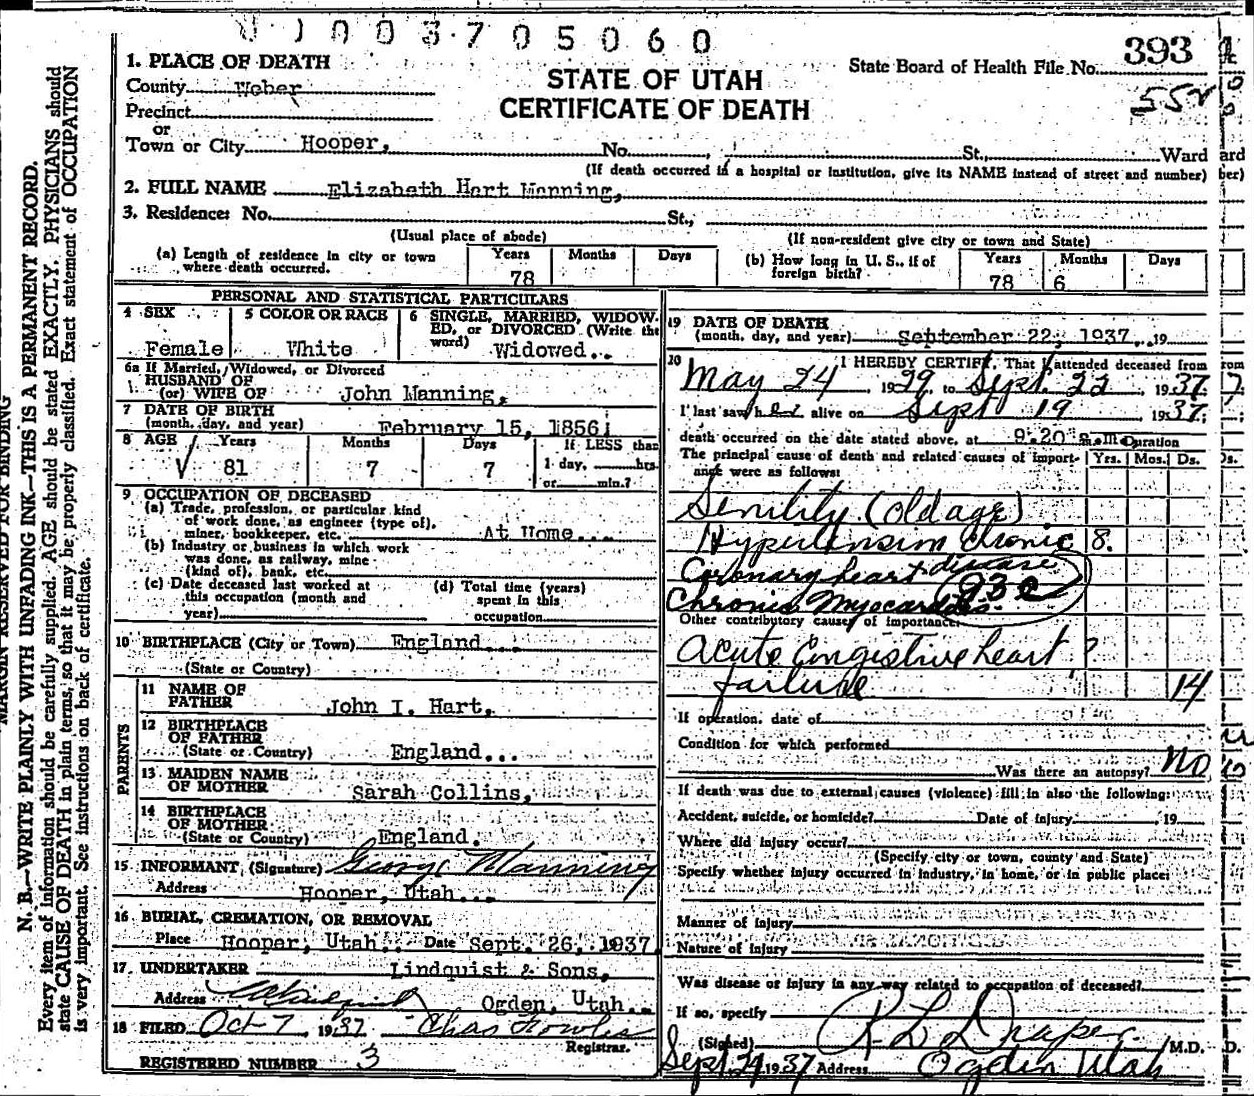 0 1 0 0 3 7 0 5 0 6 0
1. PLACE OF DEATH
County Weber
Precinct
or
Town or City Hooper, No. , St., Ward
STATE OF UTAH
CERTIFICATE OF DEATH
State Board of Health File No. 393
552
(If death occurred in a hospital or institution, give its NAME instead of street and number)
2. FULL NAME Elizabeth Hart Manning,
3. Residence: No. St.,
(Usual place of abode) (If non-resident give city or town and State)
(a) Length of residence in city or town where death occurred. Years 78 Months Days
(b) How long in U. S., if of foreign birth? Years 78 Months 6 Days
PERSONAL AND STATISTICAL PARTICULARS
4 SEX Female
5 COLOR OR RACE White
6 SINGLE, MARRIED, WIDOWED, or DIVORCED (Write the word) Widowed..
6a If Married, Widowed, or Divorced
HUSBAND OF
(or) WIFE OF John Manning,
7 DATE OF BIRTH
(month, day, and year) February 15, 1856
8 AGE Years 81 Months 7 Days 7 If LESS than 1 day, hrs. or min.?
9 OCCUPATION OF DECEASED
(a) Trade, profession, or particular kind
of work done, as engineer (type of),
miner, bookkeeper, etc. At Home...
(b) Industry or business in which work
was done, as railway, mine
(kind of), bank, etc.
(c) Date deceased last worked at
this occupation (month and
year)
(d) Total time (years)
spent in this
occupation
10 BIRTHPLACE (City or Town) England
(State or Country)
PARENTS
11 NAME OF
FATHER John I. Hart,
12 BIRTHPLACE
OF FATHER
(State or Country) England...
13 MAIDEN NAME
OF MOTHER Sarah Collins,
14 BIRTHPLACE
OF MOTHER
(State or Country) England.
15 INFORMANT (Signature) George Manning
Address Hooper, Utah...
16 BURIAL, CREMATION, OR REMOVAL
Place Hooper, Utah.. Date Sept. 26, 1937
17 UNDERTAKER Lindquist & Sons,
Address Ogden, Utah..
18 FILED Oct 7 1937 Chas Fowles
Registrar.
REGISTERED NUMBER 3
19 DATE OF DEATH
(month, day, and year) September 22, 1937, 19
20 I HEREBY CERTIFY, That I attended deceased from
May 24 1929 to Sept 22 1937
I last saw her alive on Sept 19 1937
death occurred on the date stated above, at 9:20 a.m. Duration
The principal cause of death and related causes of importance were as follows: Yrs. Mos. Ds.
Senility (old age)
Hypertension chronic 8.
Coronary heart disease
Chronic Myocarditis. 93c
Other contributory causes of importance:
Acute Congistive heart ?
failure 14
If operation, date of
Condition for which performed
Was there an autopsy? No
If death was due to external causes (violence) fill in also the following:
Accident, suicide, or homicide? Date of injury 19
Where did injury occur?
(Specify city or town, county and State)
Specify whether injury occurred in industry, in home, or in public place:
Manner of Injury
Nature of Injury
Was disease or injury in any way related to occupation of deceased?
If so, specify
(Signed) R L Draper M.D.
Sept. 24 1937 Address Ogden Utah
MARGIN RESERVED FOR BINDING
N. B.—WRITE PLAINLY WITH UNFADING INK—THIS IS A PERMANENT RECORD.
Every item of information should be carefully supplied. AGE should be stated EXACTLY. PHYSICIANS should
state CAUSE OF DEATH in plain terms, so that it may be properly classified. Exact statement of OCCUPATION
is very important. See instructions on back of certificate.